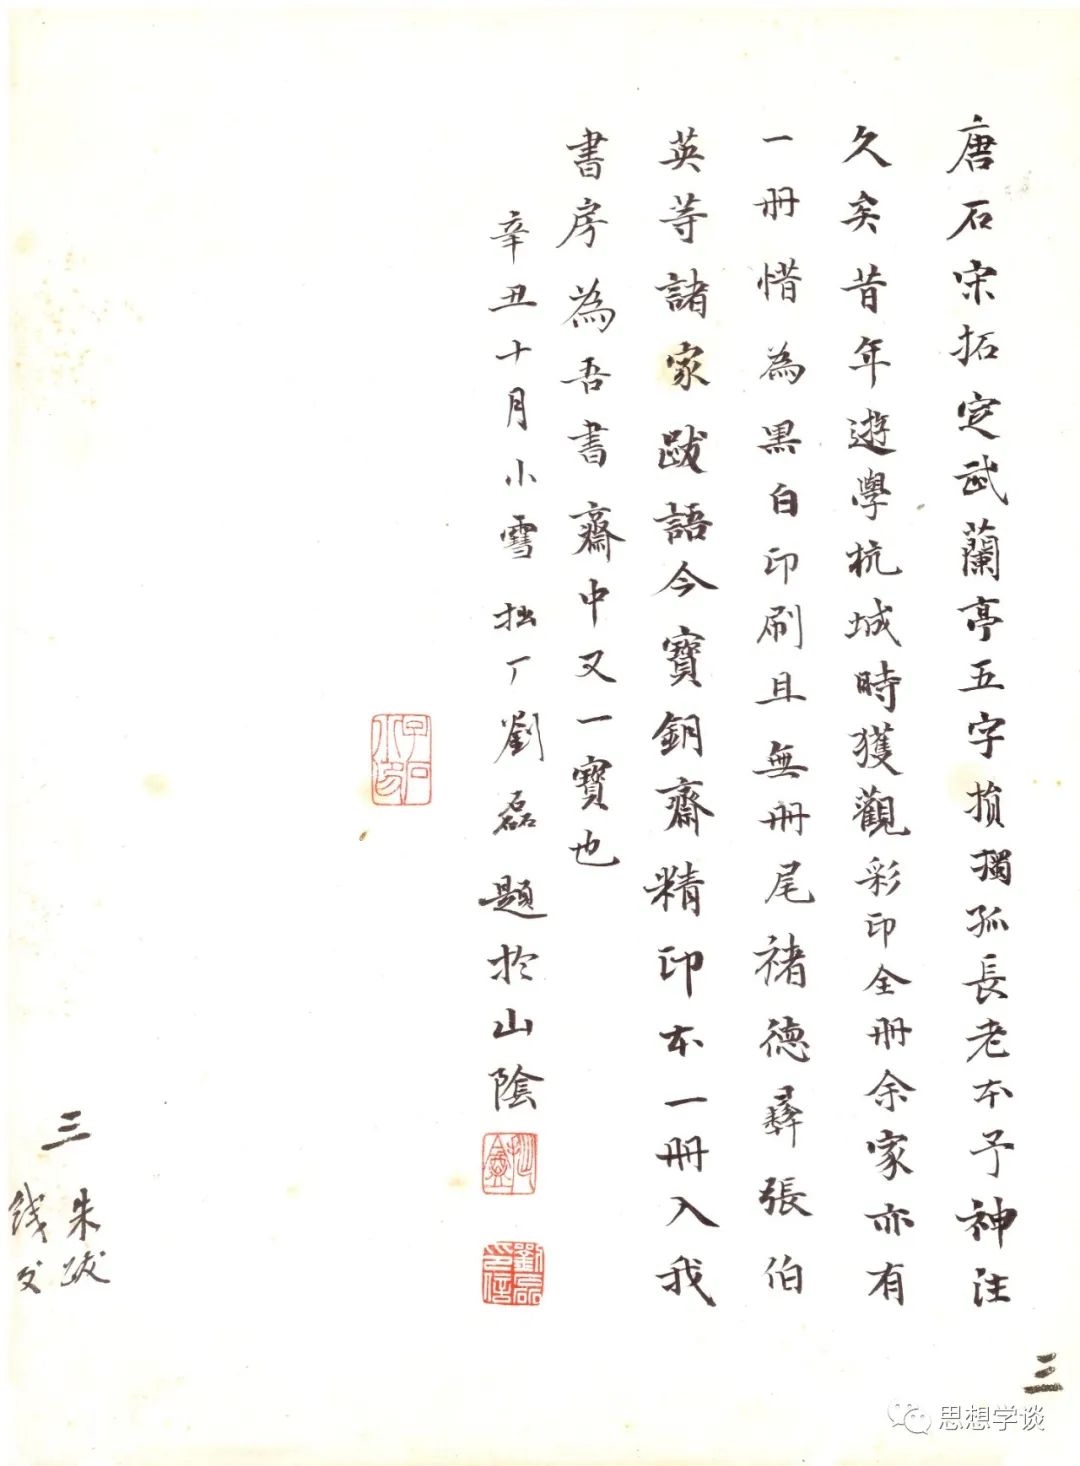 唐石宋拓定武蘭亭五字損獨孤長老本予神注
久矣昔年遊學杭城時獲觀彩印全冊余家亦有
一冊惜為黑白印刷且無冊尾褚德彝張伯
英等諸家跋語今寶銅齋精印本一冊入我
書房為吾書齋中又一寶也
辛丑十月小雪拙丁劉磊題於山陰
劉磊
三
三
朱跋
钱
思想学谈